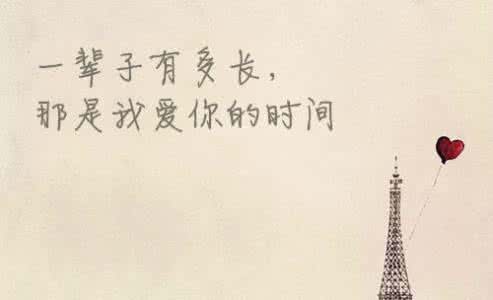 一辈子有多长，
那是我爱你的时间